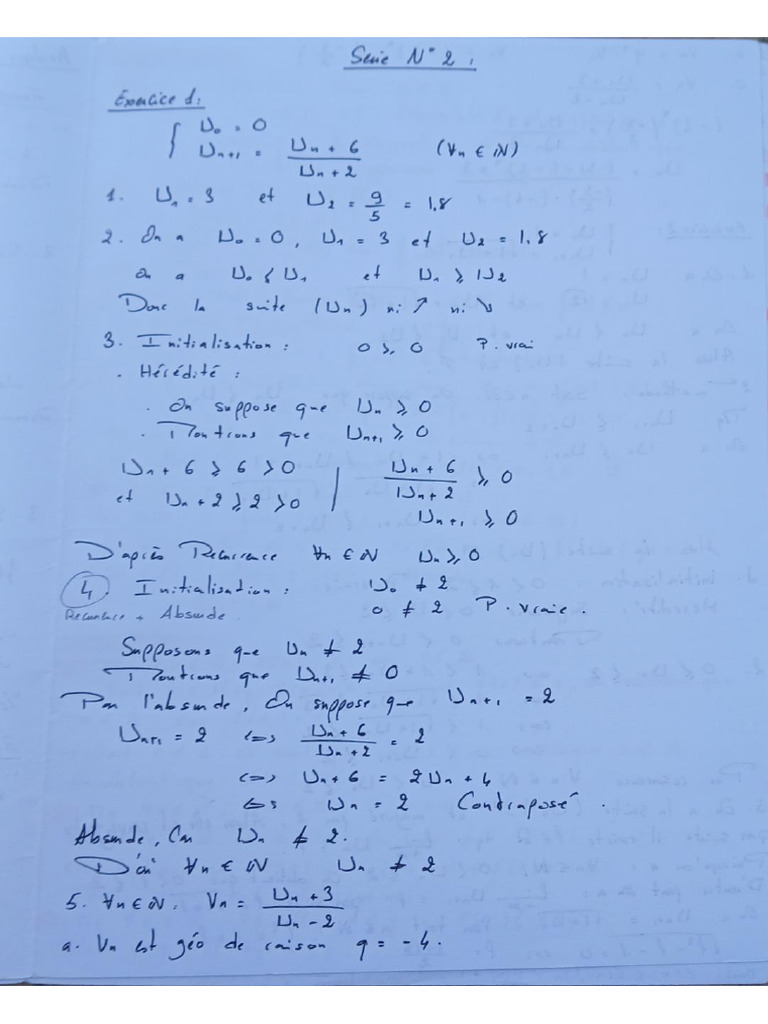 Serie N° 2 :
Exercice 1 :
{ U₀ = 0
Uₙ₊₁ = (Uₙ + 6)/(Uₙ + 2) (∀n ∈ ℕ)
1. U₁ = 3 et U₂ = 9/5 = 1,8
2. On a U₀ = 0, U₁ = 3 et U₂ = 1,8
on a U₀ ≤ U₁ et U₁ ≥ U₂
Donc la suite (Uₙ) ni ↗ ni ↘
3. Initialisation : 0 ≥ 0 P. vrai
. Hérédité :
. On suppose que Uₙ ≥ 0
. Montrons que Uₙ₊₁ ≥ 0
Uₙ + 6 ≥ 6 > 0 | (Uₙ + 6)/(Uₙ + 2) ≥ 0
et Uₙ + 2 ≥ 2 > 0 | Uₙ₊₁ ≥ 0
D'après Recurrence ∀n ∈ ℕ Uₙ ≥ 0
4. Initialisation : U₀ ≠ 2
Recurrence + Absurde 0 ≠ 2 P. vraie.
Supposons que Uₙ ≠ 2
Montrons que Uₙ₊₁ ≠ 0
Par l'absurde, On suppose que Uₙ₊₁ = 2
Uₙ₊₁ = 2 <=> (Uₙ + 6)/(Uₙ + 2) = 2
<=> Uₙ + 6 = 2Uₙ + 4
<=> Uₙ = 2 Contraposé.
Absurde, Car Uₙ ≠ 2.
D'où ∀n ∈ ℕ Uₙ ≠ 2
5. ∀n ∈ ℕ. Vₙ = (Uₙ + 3)/(Uₙ - 2)
a. Vₙ est géo de raison q = -4.